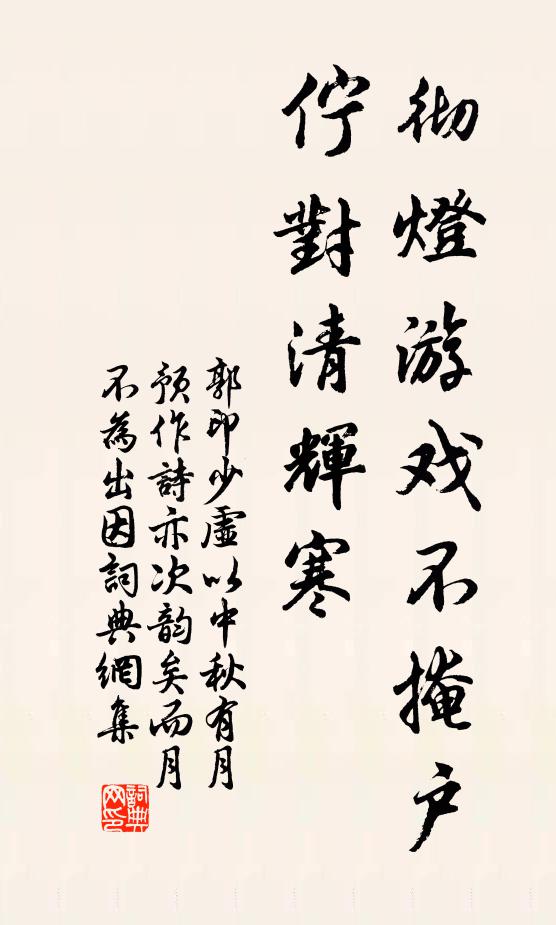 彻燈游戏不掩户
佇對清輝寒
郭印少虛以中秋有月
預作詩亦次韵矣而月
不為出因詞典網集
詞典
网印